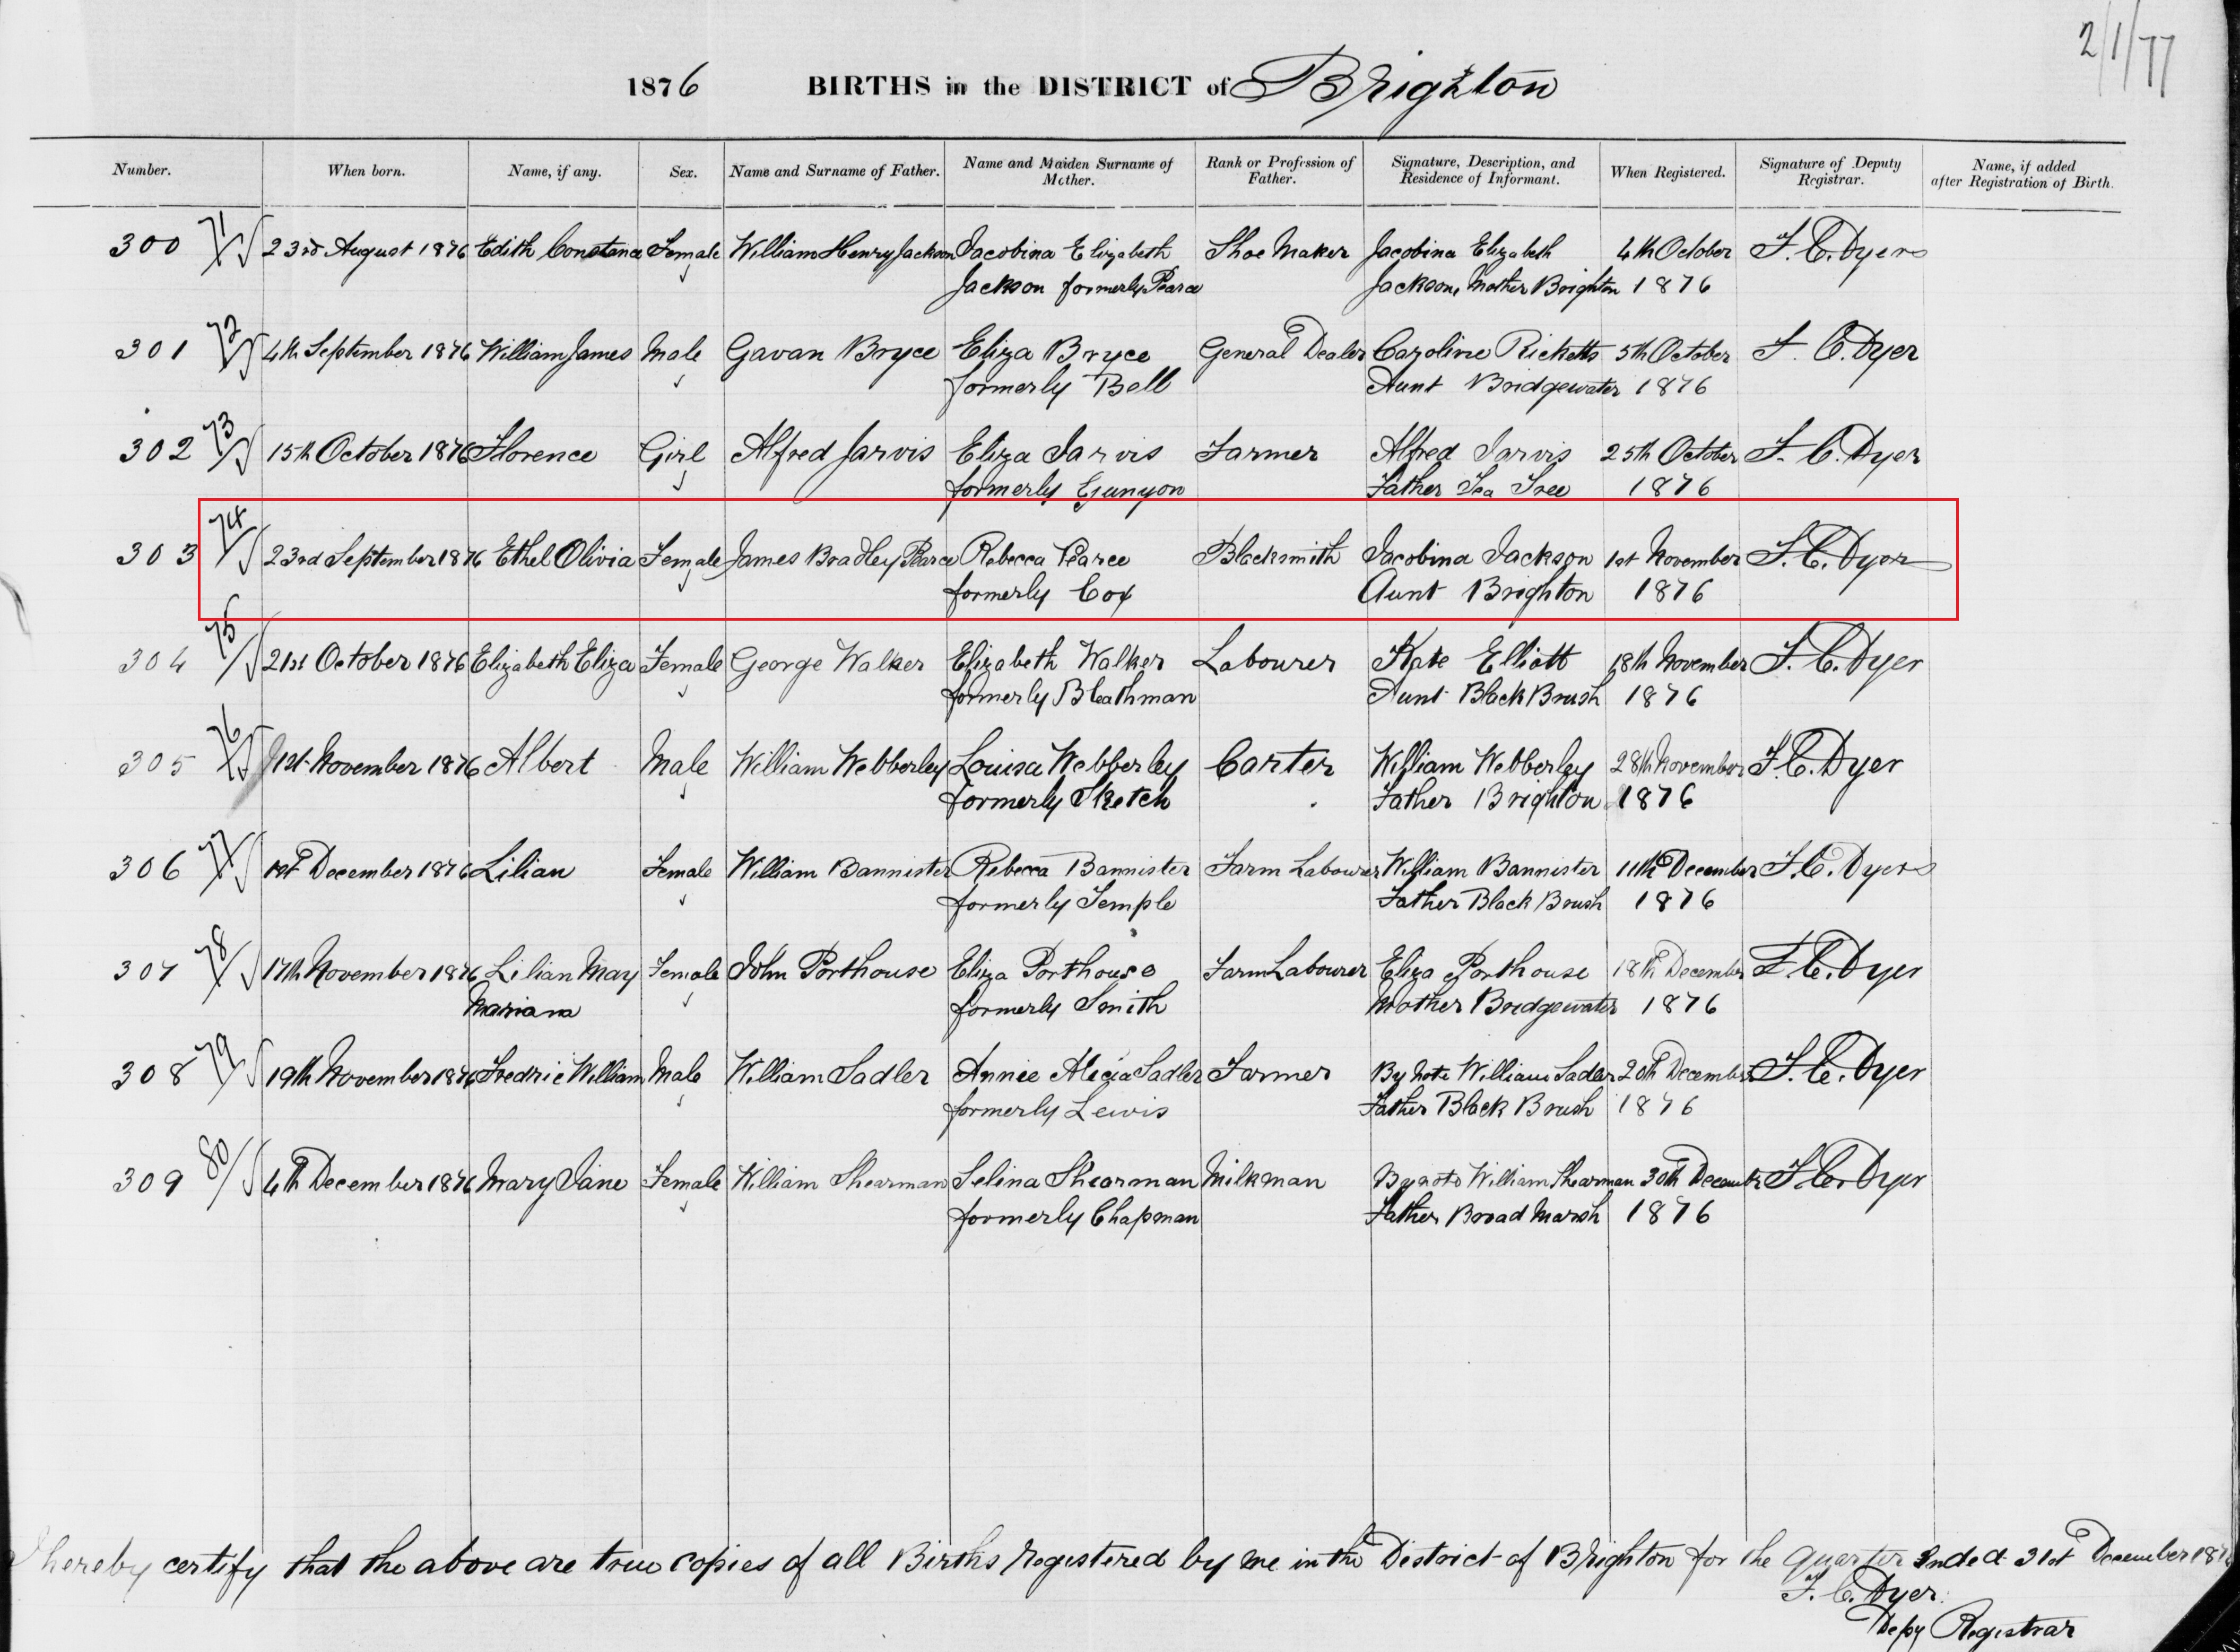 2/1/77
1876 BIRTHS in the DISTRICT of Brighton
Number. When born. Name, if any. Sex. Name and Surname of Father. Name and Maiden Surname of Mother. Rank or Profession of Father. Signature, Description, and Residence of Informant. When Registered. Signature of Deputy Registrar. Name, if added after Registration of Birth.
300 71 23rd August 1876 Edith Constance Female William Henry Jackson Jacobina Elizabeth Shoe Maker Jacobina Elizabeth 4th October F. C. Dyer
Jackson formerly Pearce Jackson, Mother Brighton 1876
301 72 4th September 1876 William James Male Gavan Bryce Eliza Bryce General Dealer Caroline Ricketts 5th October F. C. Dyer
formerly Bell Aunt Bridgewater 1876
302 73 15th October 1876 Florence Girl Alfred Jarvis Eliza Jarvis Farmer Alfred Jarvis 25th October F. C. Dyer
formerly Gunyon Father Tea Tree 1876
303 74 23rd September 1876 Ethel Olivia Female James Bradley Pearce Rebecca Pearce Blacksmith Jacobina Jackson 1st November F. C. Dyer
formerly Cox Aunt Brighton 1876
304 75 21st October 1876 Elizabeth Eliza Female George Walker Elizabeth Walker Labourer Kate Elliott 18th November F. C. Dyer
formerly Bleathman Aunt Black Brush 1876
305 76 1st November 1876 Albert Male William Webberley Louisa Webberley Carter William Webberley 28th November F. C. Dyer
formerly Sketch Father Brighton 1876
306 77 1st December 1876 Lilian Female William Bannister Rebecca Bannister Farm Labourer William Bannister 11th December F. C. Dyer
formerly Temple Father Black Brush 1876
307 78 17th November 1876 Lilian May Female John Porthouse Eliza Porthouse Farm Labourer Eliza Porthouse 18th December F. C. Dyer
Mariana formerly Smith Mother Bridgewater 1876
308 79 19th November 1876 Fredric William Male William Sadler Annie Alicia Sadler Farmer By note William Sadler 20th December F. C. Dyer
formerly Lewis Father Black Brush 1876
309 80 4th December 1876 Mary Jane Female William Shearman Selina Shearman Milkman By note William Shearman 30th December F. C. Dyer
formerly Chapman Father Broad Marsh 1876
I hereby certify that the above are true copies of all Births registered by me in the District of Brighton for the quarter ended 31st December 1876
F. C. Dyer
Depy Registrar